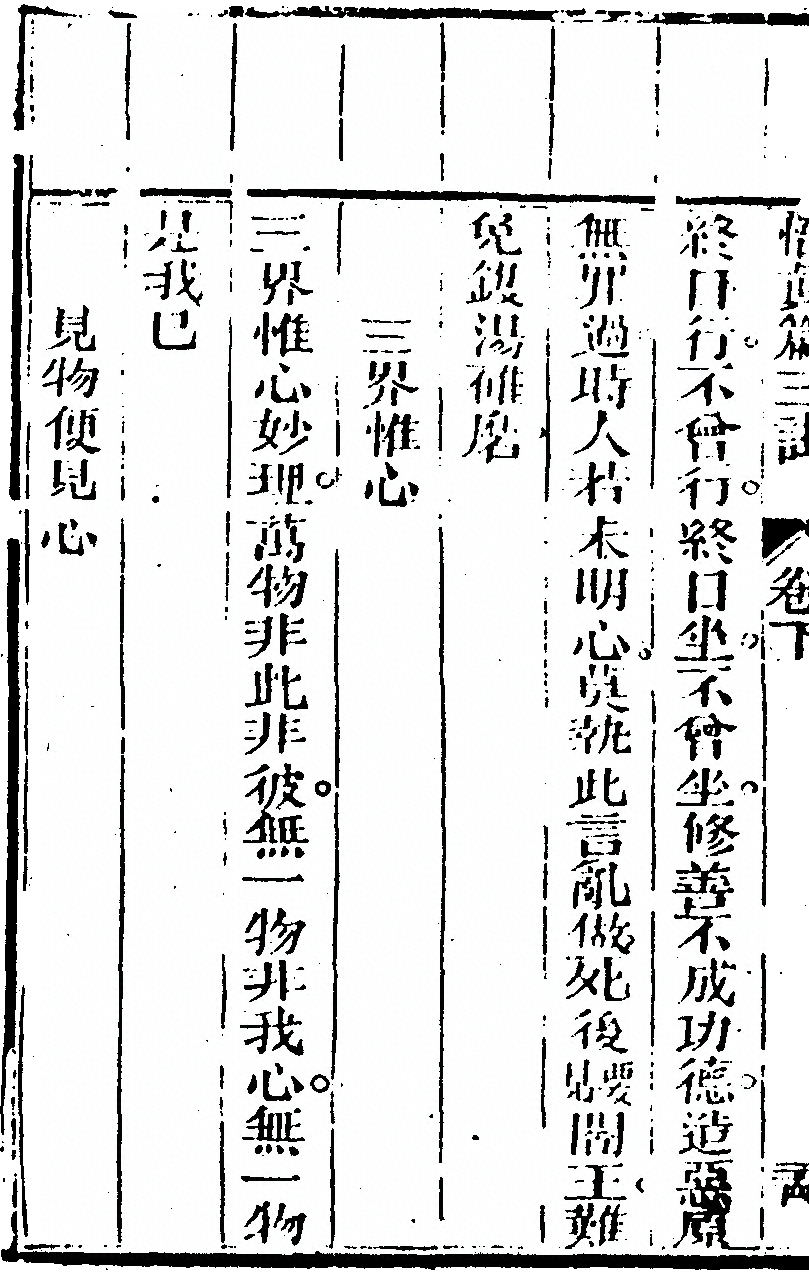 悟真篇三註　卷下
終日行不曾行終日坐不曾坐修善不成功德造惡原
無罪過時人若未明心莫執此言亂做死後要見閻王難
免鑊湯碓磨
三界惟心
三界惟心妙理萬物非此非彼無一物非我心無一物
是我已
見物便見心